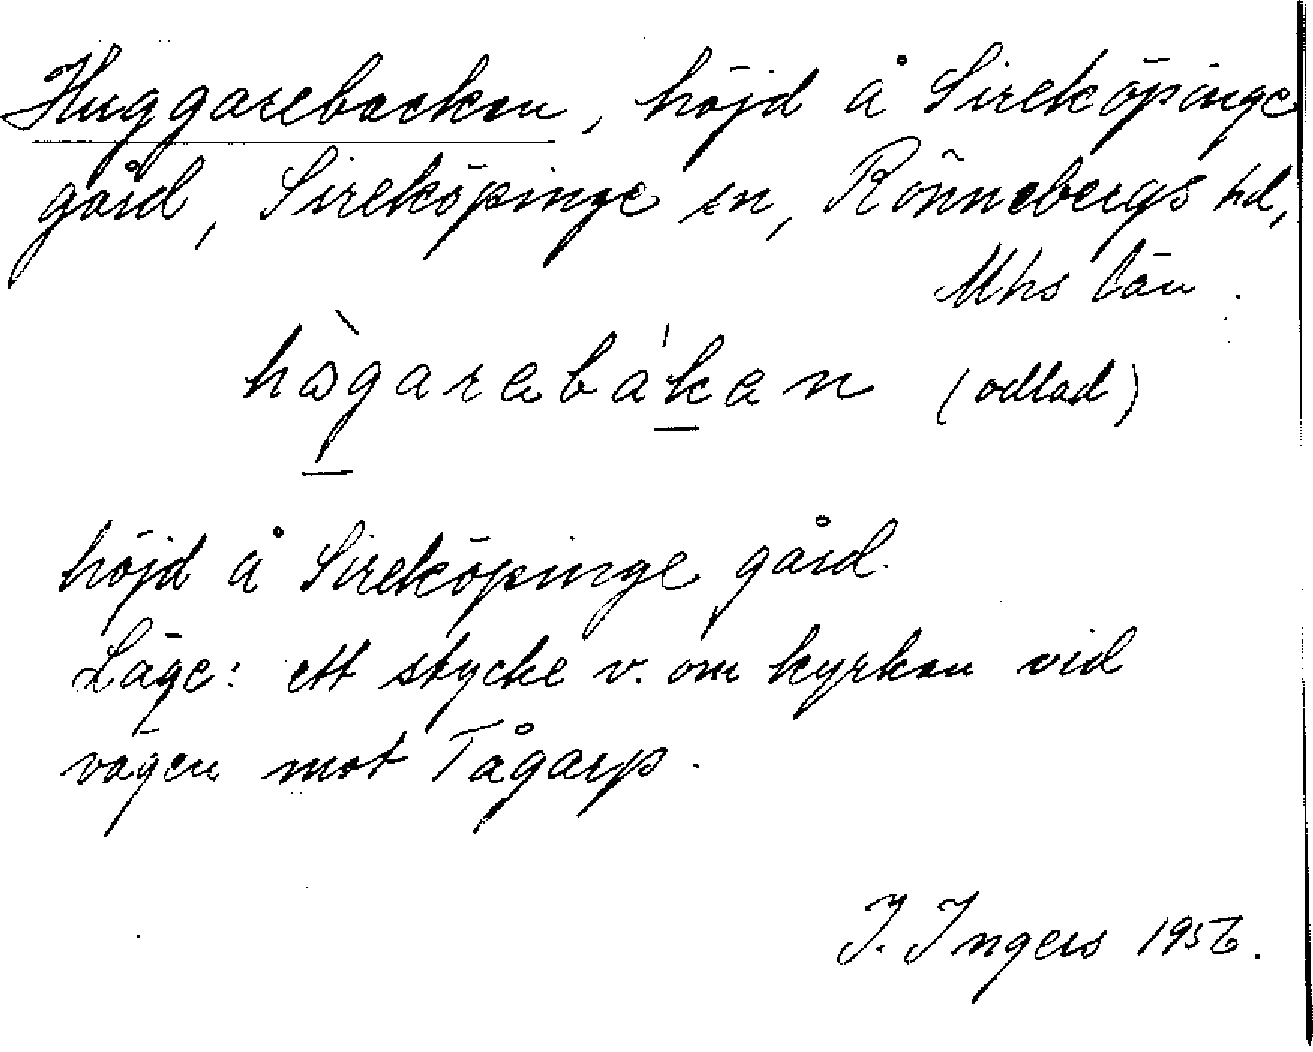 Huggarebacken, höjd å Sireköpinge
gård, Sireköpinge sn, Rönnebergs hd,
Mhs län.
hògarebáken (odlad)
höjd å Sireköpinge gård.
Läge: ett stycke v. om kyrkan vid
vägen mot Tågarp.
I. Ingers 1956.